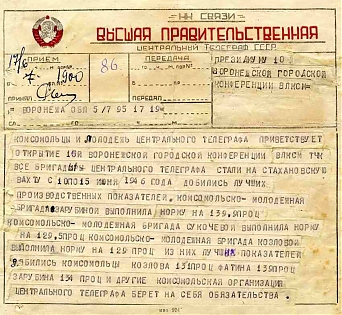 НКСВЯЗИ
ВЫСШАЯ ПРАВИТЕЛЬСТВЕННАЯ
ЦЕНТРАЛЬНЫЙ ТЕЛЕГРАФ СССР
ПРИЕМ
ПЕРЕДАЧА
ПРЕЗИДИУМУ 10
ВОРОНЕЖСКОЙ ГОРОДСКОЙ
КОНФЕРЕНЦИИ ВЛКСМ=
86
1900
ВОРОНЕЖА ОБЛ 5/7 95 17 19=
КОМСОМОЛЬЦЫ И МОЛОДЕЖЬ ЦЕНТРАЛЬНОГО ТЕЛЕГРАФА ПРИВЕТСТВУЕТ
ОТКРЫТИЕ ВОРОНЕЖСКОЙ ГОРОДСКОЙ КОНФЕРЕНЦИИ ВЛКСМ ТЧК
ВСЕ БРИГАДЫ ЦЕНТРАЛЬНОГО ТЕЛЕГРАФА СТАЛИ НА СТАХАНОВСКУЮ
ВАХТУ С 10 ПО 15 ИЮНЯ 1946 ГОДА ДОБИЛИСЬ ЛУЧШИХ
ПРОИЗВОДСТВЕННЫХ ПОКАЗАТЕЛЕЙ, КОМСОМОЛЬСКО-МОЛОДЕЖНАЯ
БРИГАДА ЗАРУБИНОЙ ВЫПОЛНИЛА НОРМУ НА 139,9 ПРОЦ
КОМСОМОЛЬСКО-МОЛОДЕЖНАЯ БРИГАДА СУКОЧЕВОЙ ВЫПОЛНИЛА НОРМУ
НА 129,5 ПРОЦ КОМСОМОЛЬСКО-МОЛОДЕЖНАЯ БРИГАДА КОЗЛОВОЙ
ВЫПОЛНИЛА НОРМУ НА 129 ПРОЦ ИЗ НИХ ЛУЧШИХ ПОКАЗАТЕЛЕЙ
ДОБИЛИСЬ КОМСОМОЛЬЦЫ КОЗЛОВА 131 ПРОЦ ФАТИНА 139 ПРОЦ
ЗАРУБИНА 134 ПРОЦ И ДРУГИЕ КОМСОМОЛЬСКАЯ ОРГАНИЗАЦИЯ
ЦЕНТРАЛЬНОГО ТЕЛЕГРАФА БЕРЕТ НА СЕБЯ ОБЯЗАТЕЛЬСТВА.